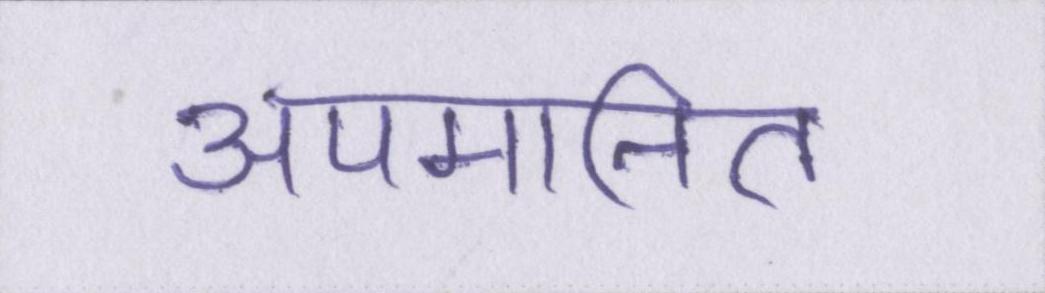 अपमानित